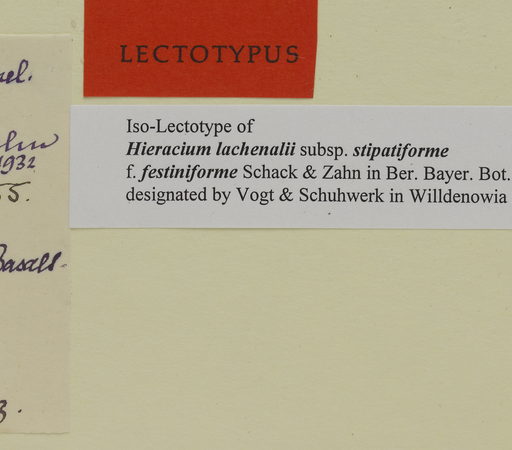 LECTOTYPUS
Iso-Lectotype of
Hieracium lachenalii subsp. stipatiforme
f. festiniforme Schack & Zahn in Ber. Bayer. Bot.
designated by Vogt & Schuhwerk in Willdenowia
1932
55.
Basalt.
3.